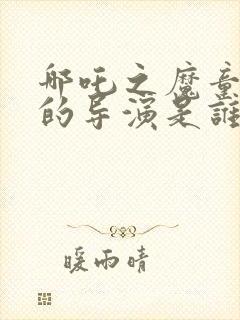 哪吒之魔童
的导演是誰
暖雨晴